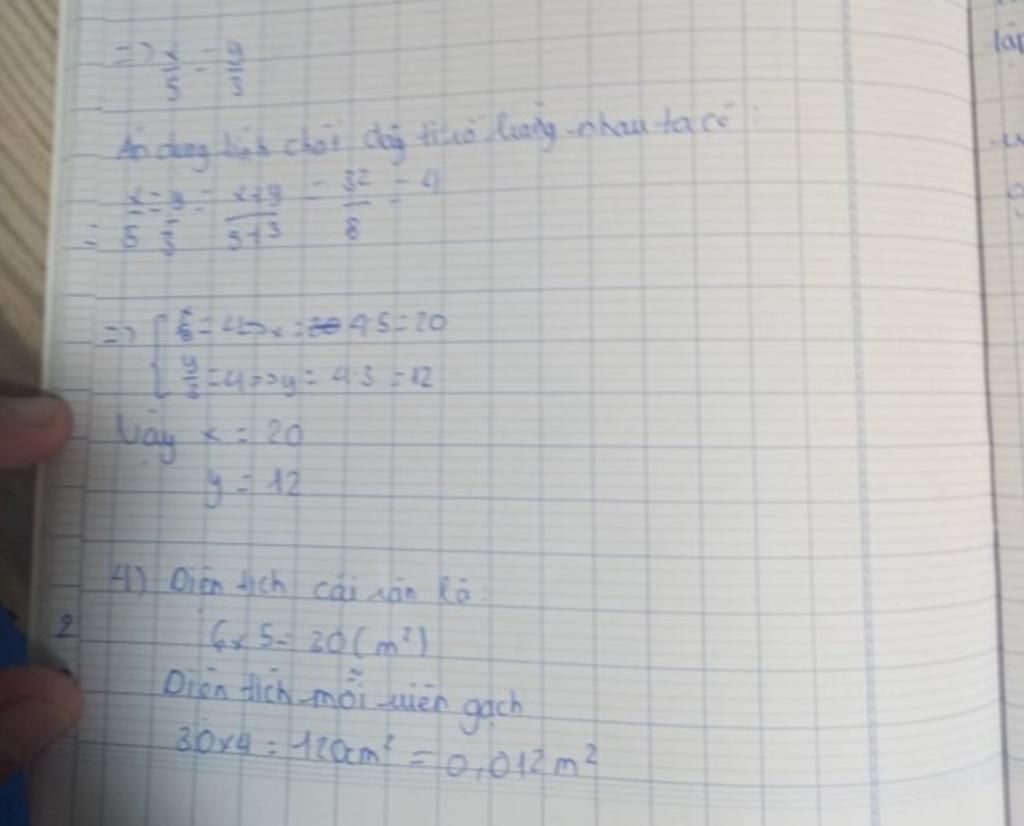 => x/5 = y/3
Áp dụng tính chất dãy tỉ số bằng nhau ta có:
= x/5 = y/3 = x+y/5+3 = 32/8 = 4
=> x/5 = 4 => x = 4.5 = 20
y/3 = 4 => y = 4.3 = 12
Vậy x = 20
y = 12
4) Diện tích cái sân là:
6 x 5 = 30 (m²)
2
Diện tích mỗi viên gạch
30 x 4 = 120cm² = 0,012 m²